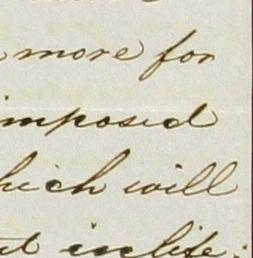 more for
imposed
hich will
in life;